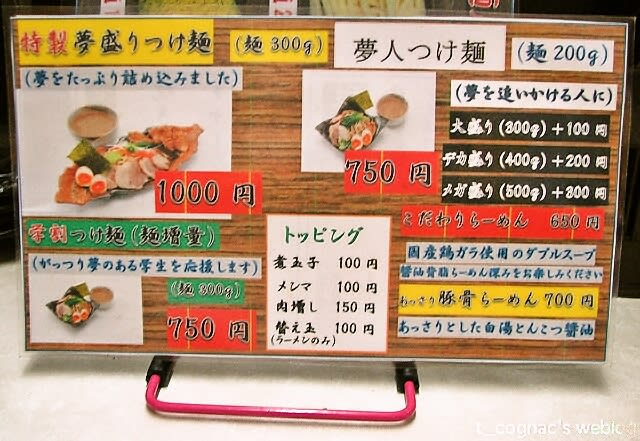 特製夢盛りつけ麺 (麺300g)
(夢をたっぷり詰め込みました)
1000円
夢人つけ麺 (麺200g)
(夢を追いかける人に)
750円
大盛り(300g)+100円
デカ盛り(400g)+200円
メガ盛り(500g)+300円
学割つけ麺(麺増量)
(がっつり夢のある学生を応援します)
(麺300g)
750円
トッピング
煮玉子 100円
メンマ 100円
肉増し 150円
替え玉 100円
(ラーメンのみ)
こだわりらーめん 650円
国産鶏ガラ使用のダブルスープ
醤油背脂らーめん深みをお楽しみください
あっさり豚骨らーめん700円
あっさりとした白湯とんこつ醤油
t_cognac's weblog